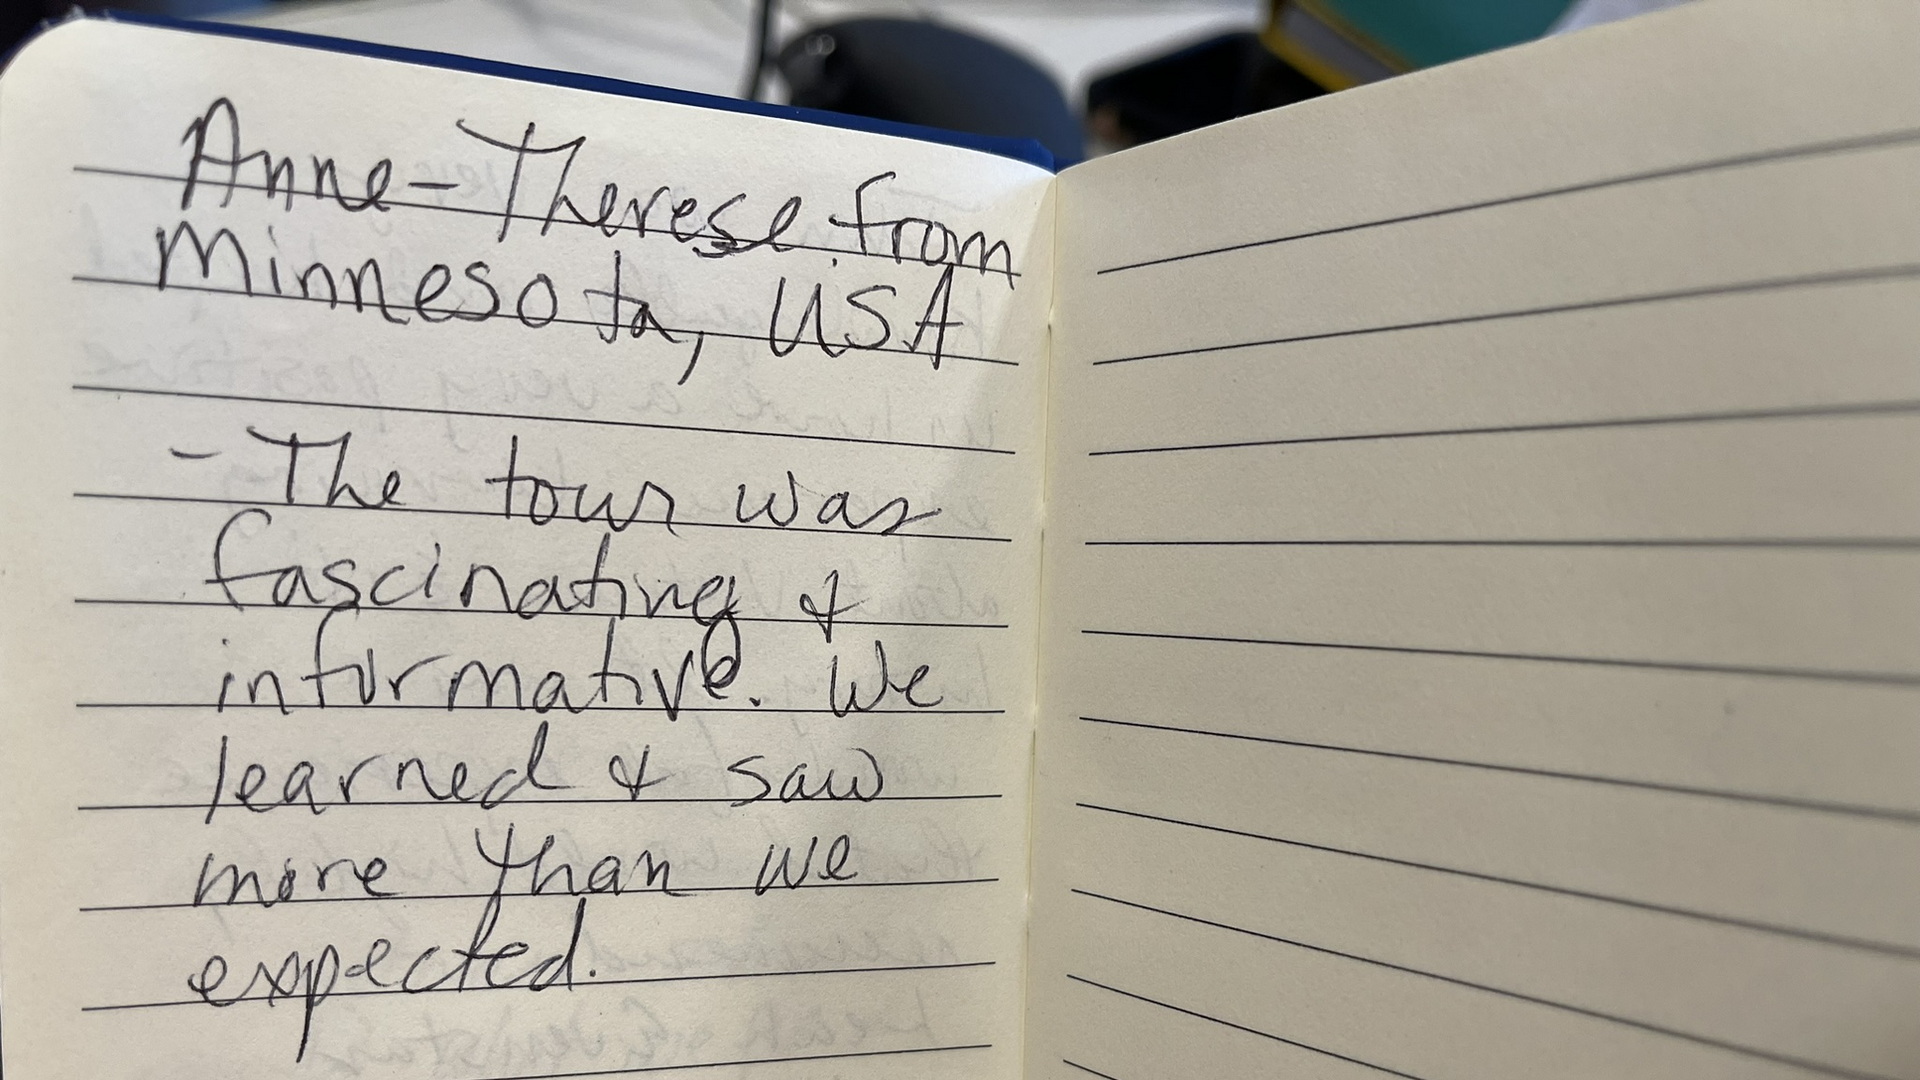 Anne-Therese from
Minnesota, USA
- The tour was
fascinating &
informative. We
learned & saw
more than we
expected.